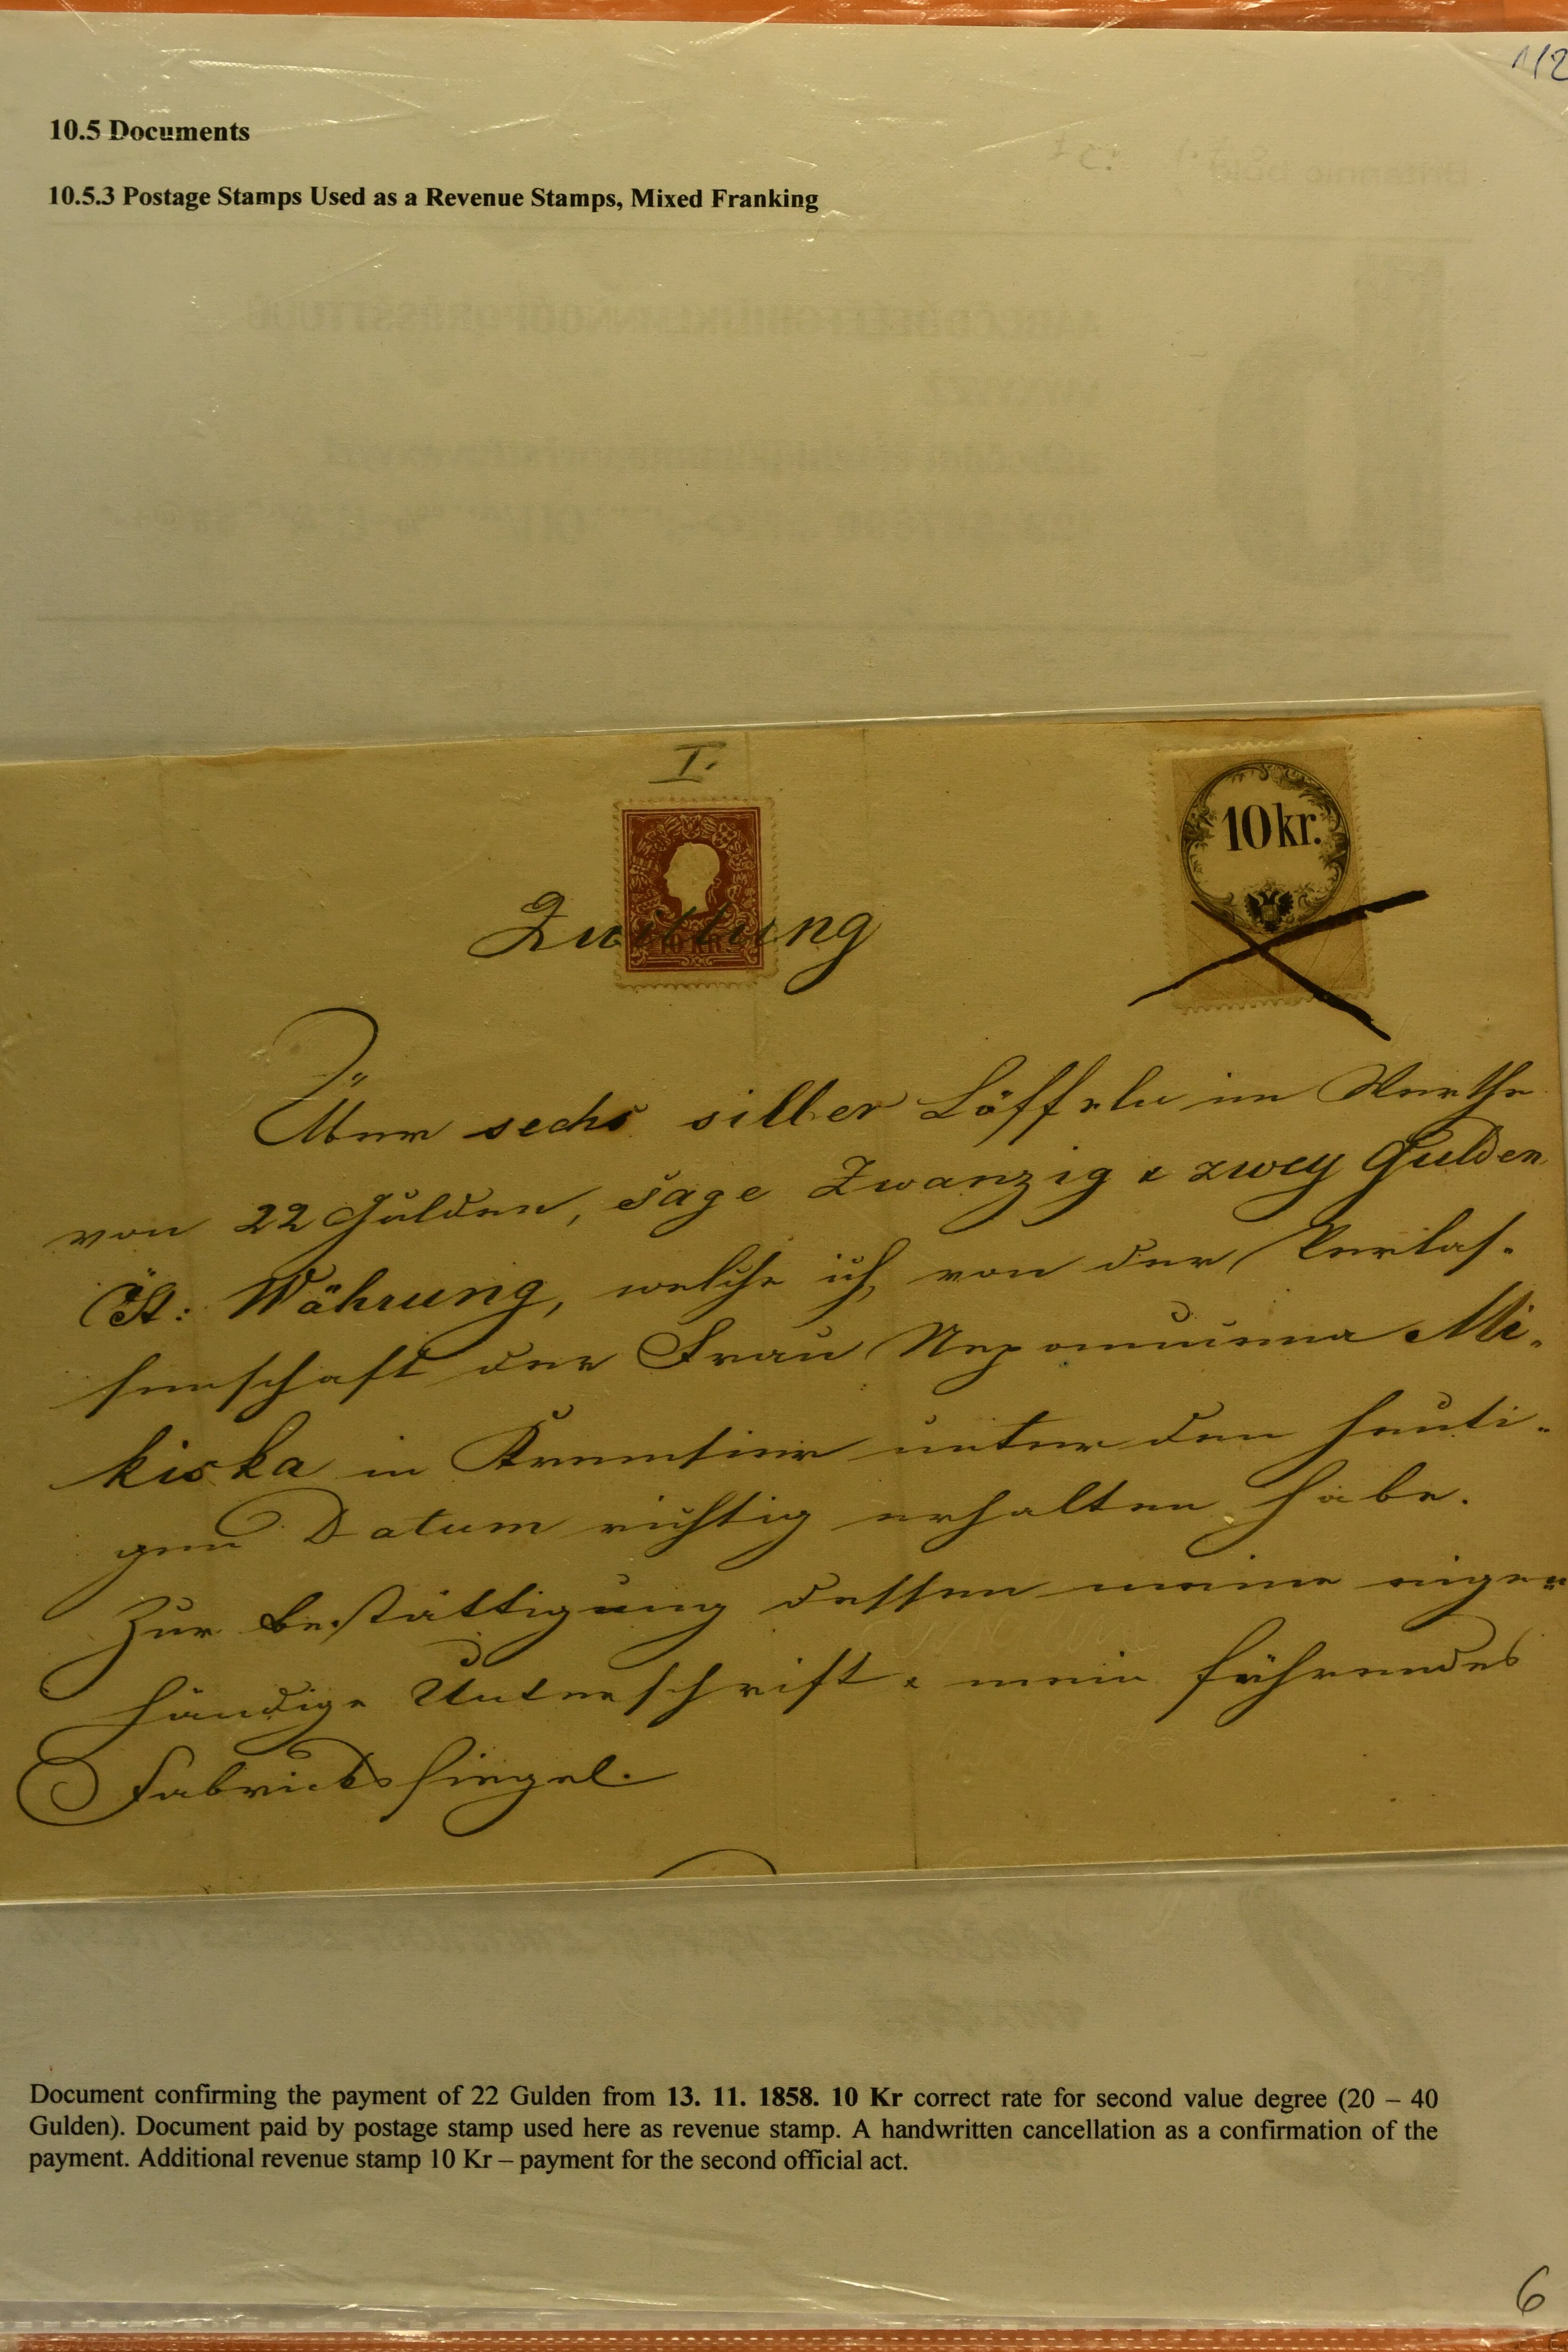 112
10.5 Documents
10.5.3 Postage Stamps Used as a Revenue Stamps, Mixed Franking
I.
10 kr.
Quittung
10 KR
Über sechs silber Löffeln im Werthe
von 22 Gulden, sage Zwanzig & zwey Gulden
Öst: Währung, welche ich von der Verlas-
senschaft der Frau Nepomucena Mi-
kiska in Kremsier unter den heuti-
gen Datum richtig erhalten habe.
Zur Bestättigung dessen meine eigen-
händige Unterschrift & mein führendes
Fabricks siegel.
Document confirming the payment of 22 Gulden from 13. 11. 1858. 10 Kr correct rate for second value degree (20 – 40
Gulden). Document paid by postage stamp used here as revenue stamp. A handwritten cancellation as a confirmation of the
payment. Additional revenue stamp 10 Kr – payment for the second official act.
6